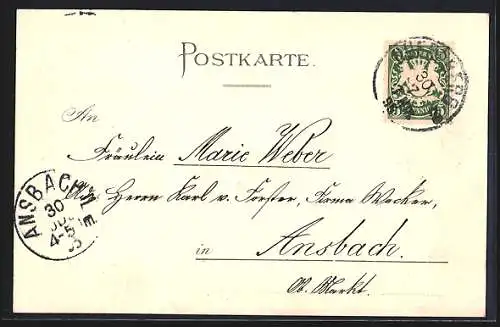 POSTKARTE.
An
Fräulein Marie Weber
Herrn Karl v. Forster, Firma Wecker,
in Ansbach.
Ob. Markt.
ANSBACH
30
4-5
30